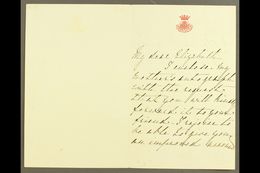 My dear Elizabeth,
I enclose my
mother's autograph
with the request
that you will kindly
forward it to your
friend. I rejoice to
be able to give you
an improved account